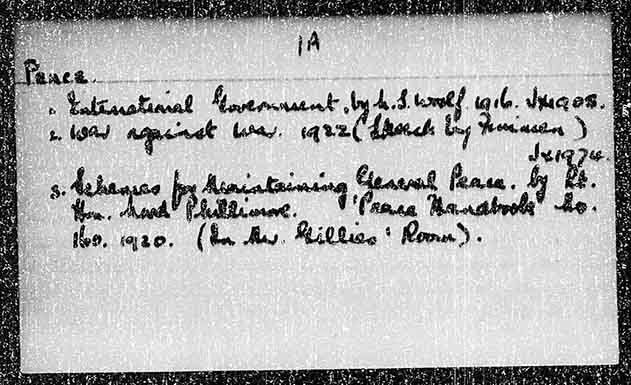 1A
Peace.
1. International Government, by L.S. Woolf. 1916. JX1908.
2. War against War. 1922 (Speech by Nansen)
JX1974.
3. Schemes for Maintaining General Peace. by Rt.
Hon. Lord Phillimore. 'Peace Handbooks' No.
160. 1920. (In Mr. Gillies' Room).